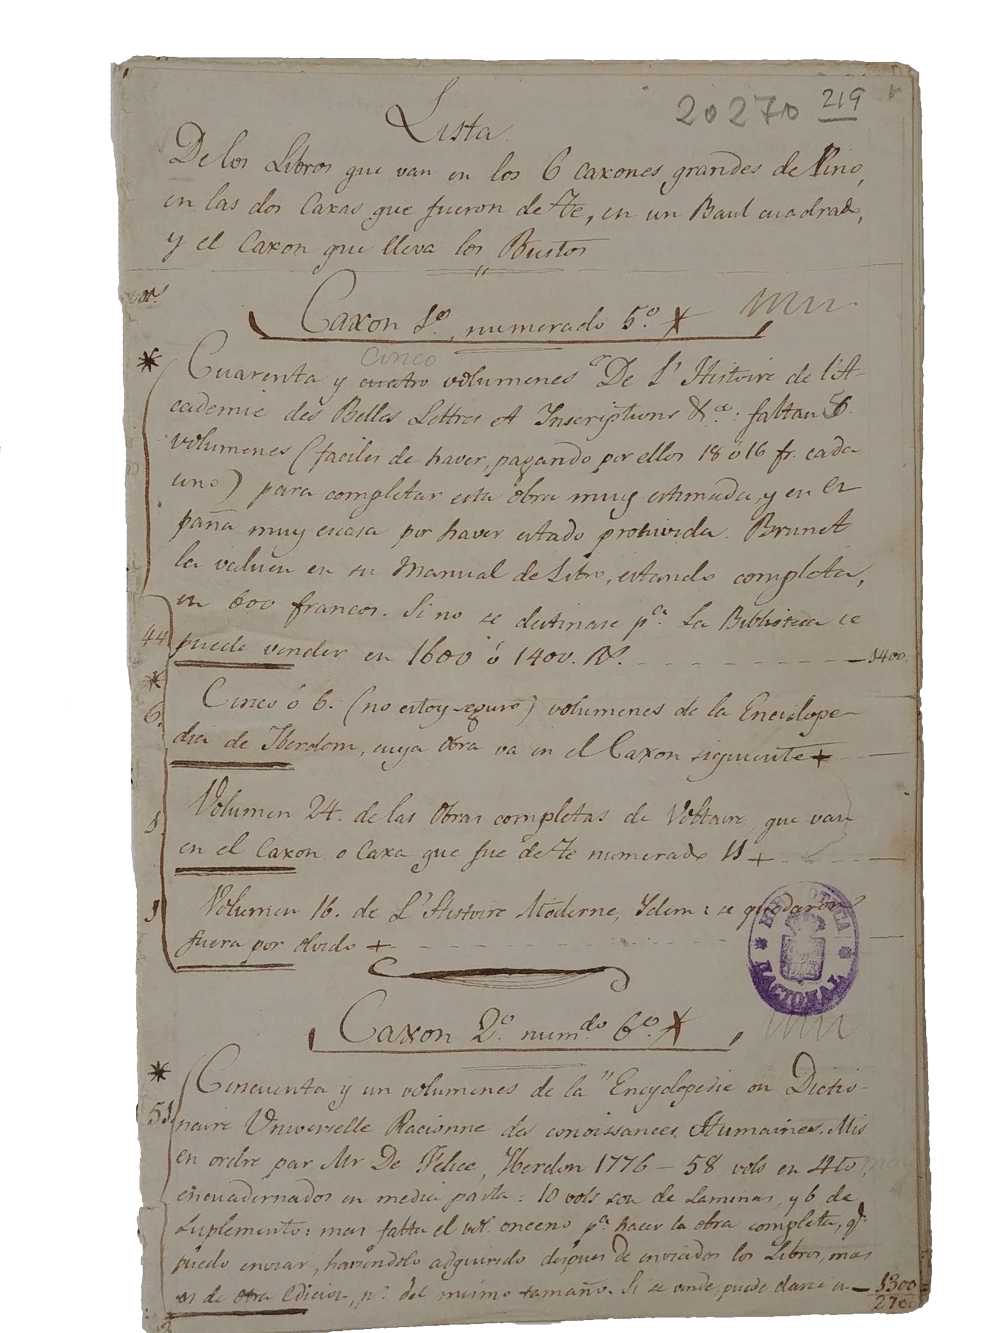 20270 219
Lista
De los Libros que van en los 6 caxones grandes de Pino,
en las dos Caxas que fueron de Te, en un Baul cuadrado,
y el Caxon que lleva los Bustos
Caxon 1.º, numerado 5.º
cinco
Cuarenta y cuatro volumenes "De L'Histoire de l'A-
cademie des Belles Lettres et Inscriptions &ca: faltan 6
volumenes (faciles de haver, pagando por ellos 18 ó 16 fr. cada
uno) para completar esta obra muy estimada, y en Es
paña muy escasa por haver estado prohivida. Brunet
la valuea en su Manual de Libro, estando completa,
en 600 francos. Si no se destinase pª. La Biblioteca se
44 puede vender en 1600 ó 1400. Rs. 1400.
6. Cinco ó 6. (no estoy seguro) volumenes de la Enciclope-
dia de Iberdom, cuya obra va en el Caxon siguiente +
1 Volumen 24. de las Obras completas de Voltaire que van
en el Caxon o Caxa que fue de Te numerado 11 +
1 Volumen 16. de L'Histoire Moderne, Idem: se quedaron
fuera por olvido +
BIBLIOTECA NACIONAL
Caxon 2.º num.do 6.º
Cincuenta y un volumenes de la "Encyclopedie ou Dictio-
51 naire Universelle Racionne des conoissances Humaines. Mis
en ordre par Mr De Felice, Iberdon 1776 - 58 vols en 4to
encuadernados en media pasta: 10 vols son de Laminas, y 6 de
Suplemento: mas falta el vol onceno pª hacer la obra completa, q.
puedo enviar, haviendolo adquirido despues de enviados los Libros, mas
es de otra Edicion, pº. del mismo tamaño. Si se vende, puede darse en 1300
2700